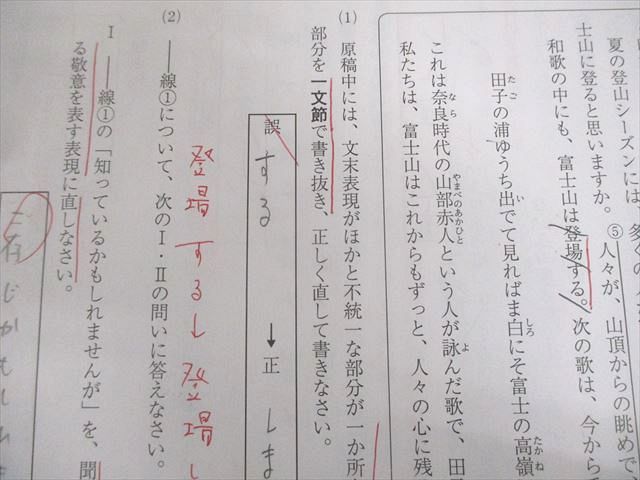 夏の登山シーズンには、多くの
士山に登ると思いますか。⑤人々が、山頂からの眺めで、
和歌の中にも、富士山は登場する。次の歌は、今から
田子の浦ゆうち出でて見ればま白にそ富士の高嶺
これは奈良時代の山部赤人という人が詠んだ歌で、田
私たちは、富士山はこれからもずっと、人々の心に残
(1) 原稿中には、文末表現がほかと不統一な部分が一か所
部分を一文節で書き抜き、正しく直して書きなさい。
誤 する → 正 しま
登場する↓登場し
(2) ――線①について、次のⅠ・Ⅱの問いに答えなさい。
Ⅰ ――線①の「知っているかもしれませんが」を、聞
る敬意を表す表現に直しなさい。
ご存じかもしれま